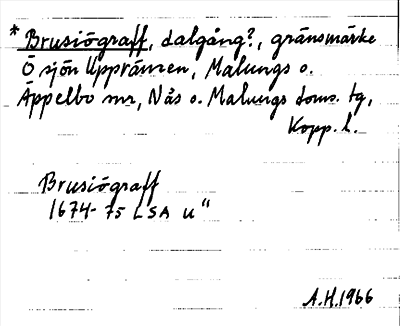 * Brusiögraff, dalgång?, gränsmärke
Ö sjön Upprämen, Malungs o.
Äppelbo snr, Nås o. Malungs doms. tg,
Kopp. l.
Brusiögraff
1674-75 LSA U"
A.H.1966